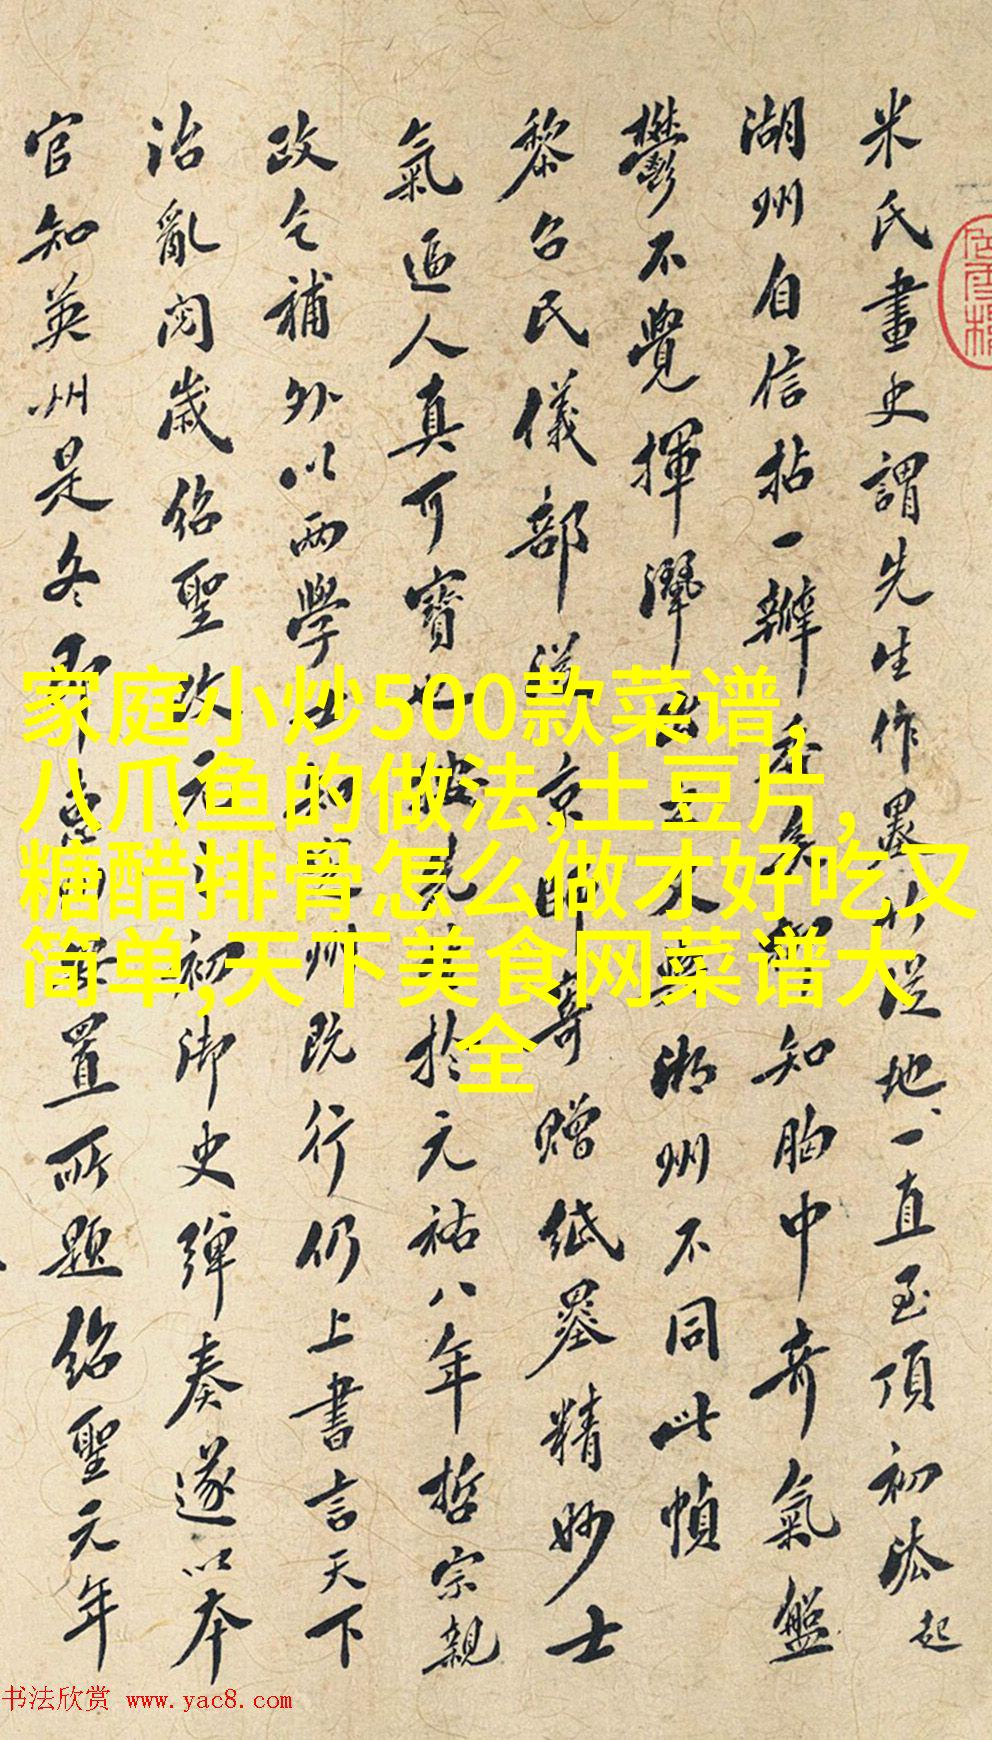 米氏畫史謂先生作墨竹從地一直至頂初法起
湖州自信拈一瓣香矣知胸中奇氣盤
鬱不覺揮灑與湖州不同此幀
黎召民儀部從京師寄贈紙墨精妙士
氣逼人真可寶也於元祐八年哲宗親
政乞補外以兩學士既行仍上書言天下
治亂閱歲紹聖改元初御史彈奏遂以本
官知英州是冬置所題紹聖元年
家庭小炒500款菜谱,
八爪鱼的做法,土豆片,
糖醋排骨怎么做才好吃又
简单,天下美食网菜谱大
全
书法欣赏 www.yac8.com